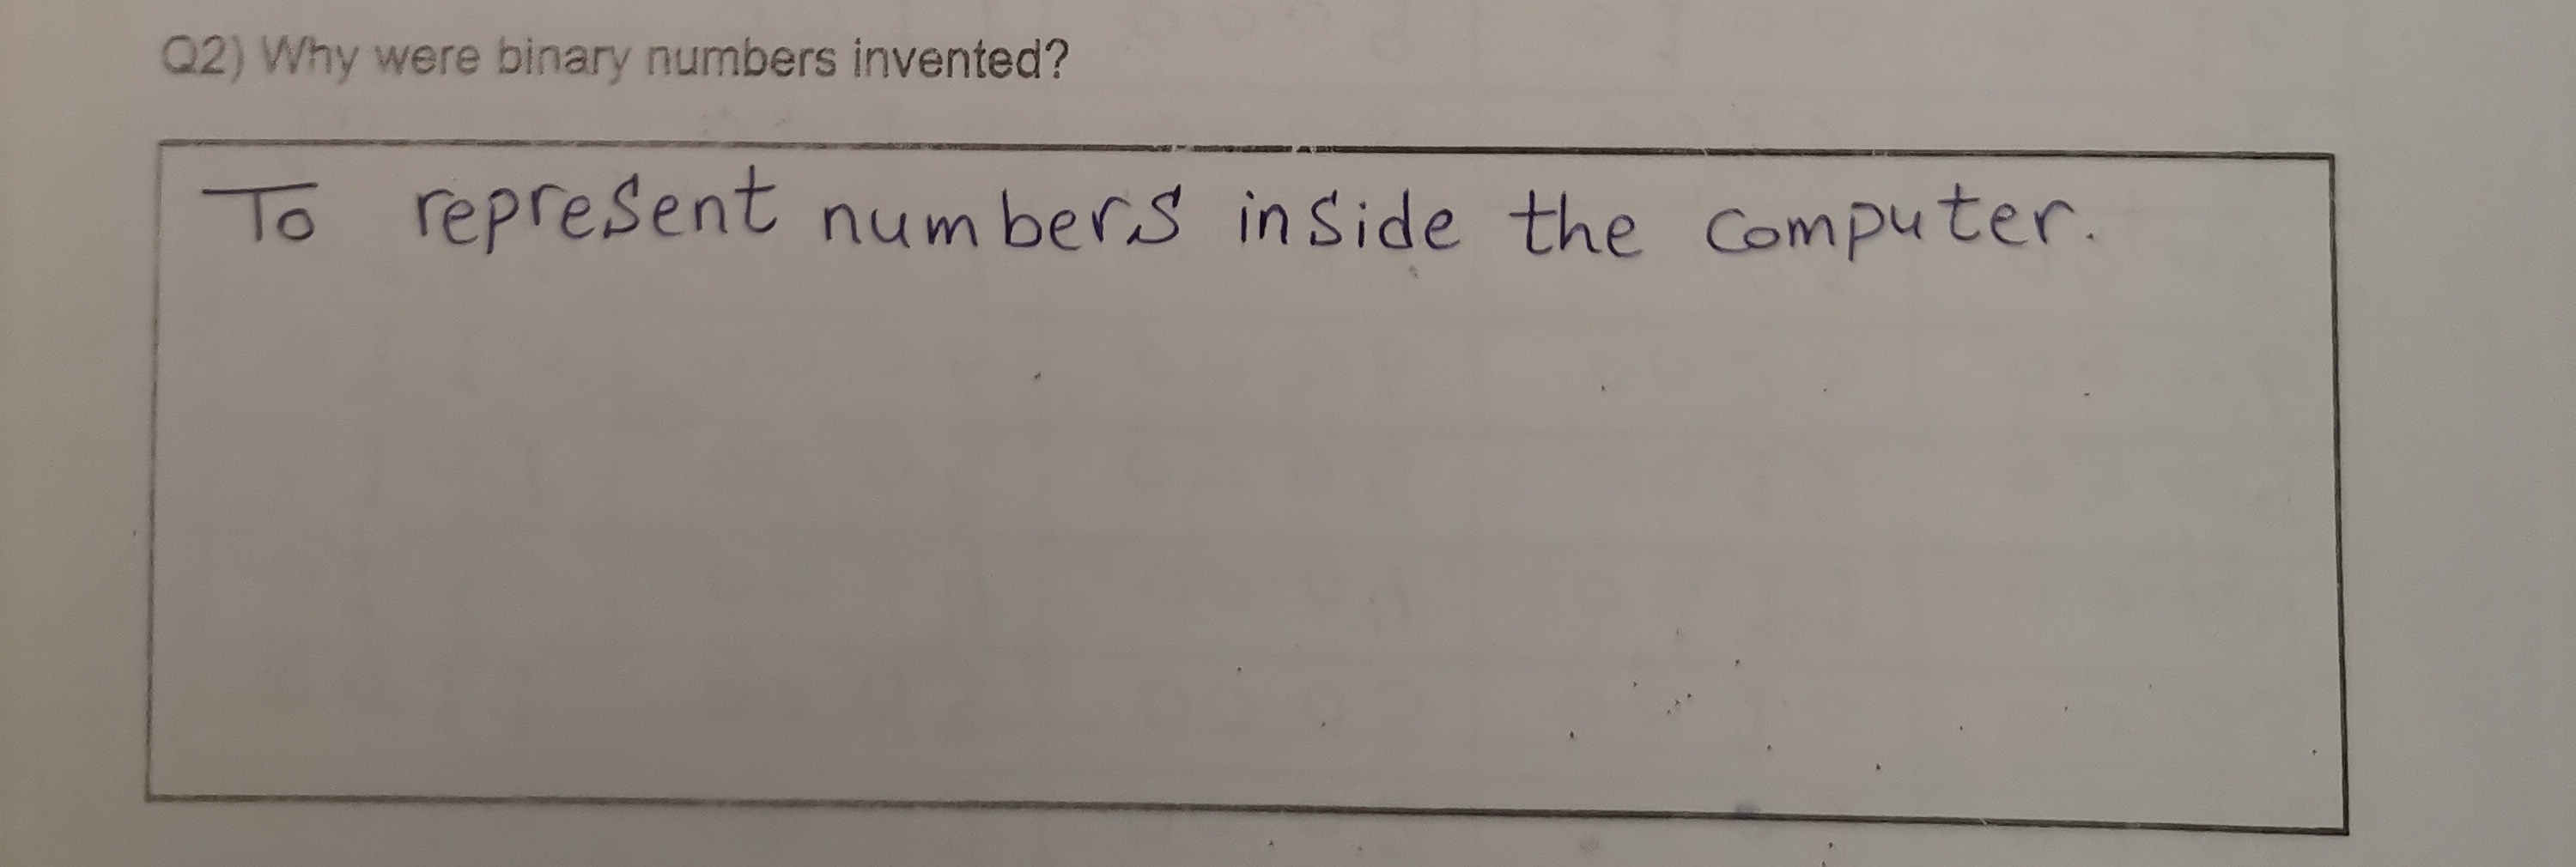 Q2) Why were binary numbers invented?
To represent numbers inside the computer.